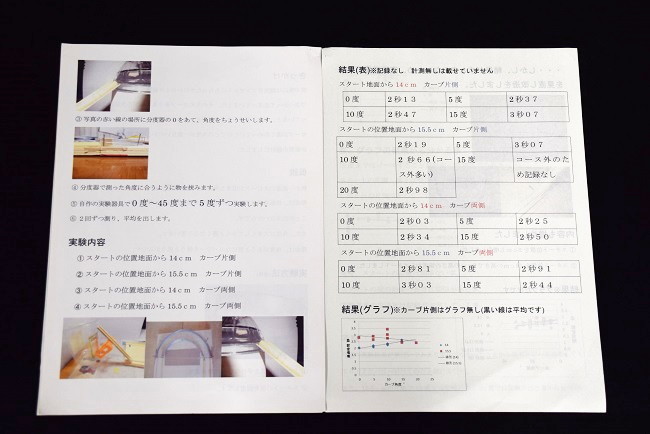 ③ 写真の赤い線の場所に分度器の０をあて、角度をちょうせいします。
④ 分度器で測った角度に合うように物を挟みます。
⑤ 自作の実験器具で０度～４５度まで５度ずつ実験します。
⑥ ２回ずつ測り、平均を出します。
実験内容
① スタートの位置地面から 14ｃｍ カーブ片側
② スタートの位置地面から 15.5ｃｍ カーブ片側
③ スタートの位置地面から 14ｃｍ カーブ両側
④ スタートの位置地面から 15.5ｃｍ カーブ両側
結果(表)※記録なし 計測無しは載せていません
スタート地面から 14ｃｍ カーブ片側
０度 ２秒１３ ５度 ２秒３７
１０度 ２秒４７ １５度 ３秒０７
スタートの位置地面から 15.5ｃｍ カーブ片側
０度 ２秒１９ ５度 ３秒０７
１０度 ２秒６６(コース外多い) １５度 コース外のため記録なし
２０度 ２秒９８
スタートの位置地面から 14ｃｍ カーブ両側
０度 ２秒０３ ５度 ２秒２５
１０度 ２秒３４ １５度 ２秒５０
スタートの位置地面から 15.5ｃｍ カーブ両側
０度 ２秒８１ ５度 ２秒９１
１０度 ３秒０３ １５度 ２秒４４
結果(グラフ)※カーブ片側はグラフ無し(黒い線は平均です)
カーブ角度